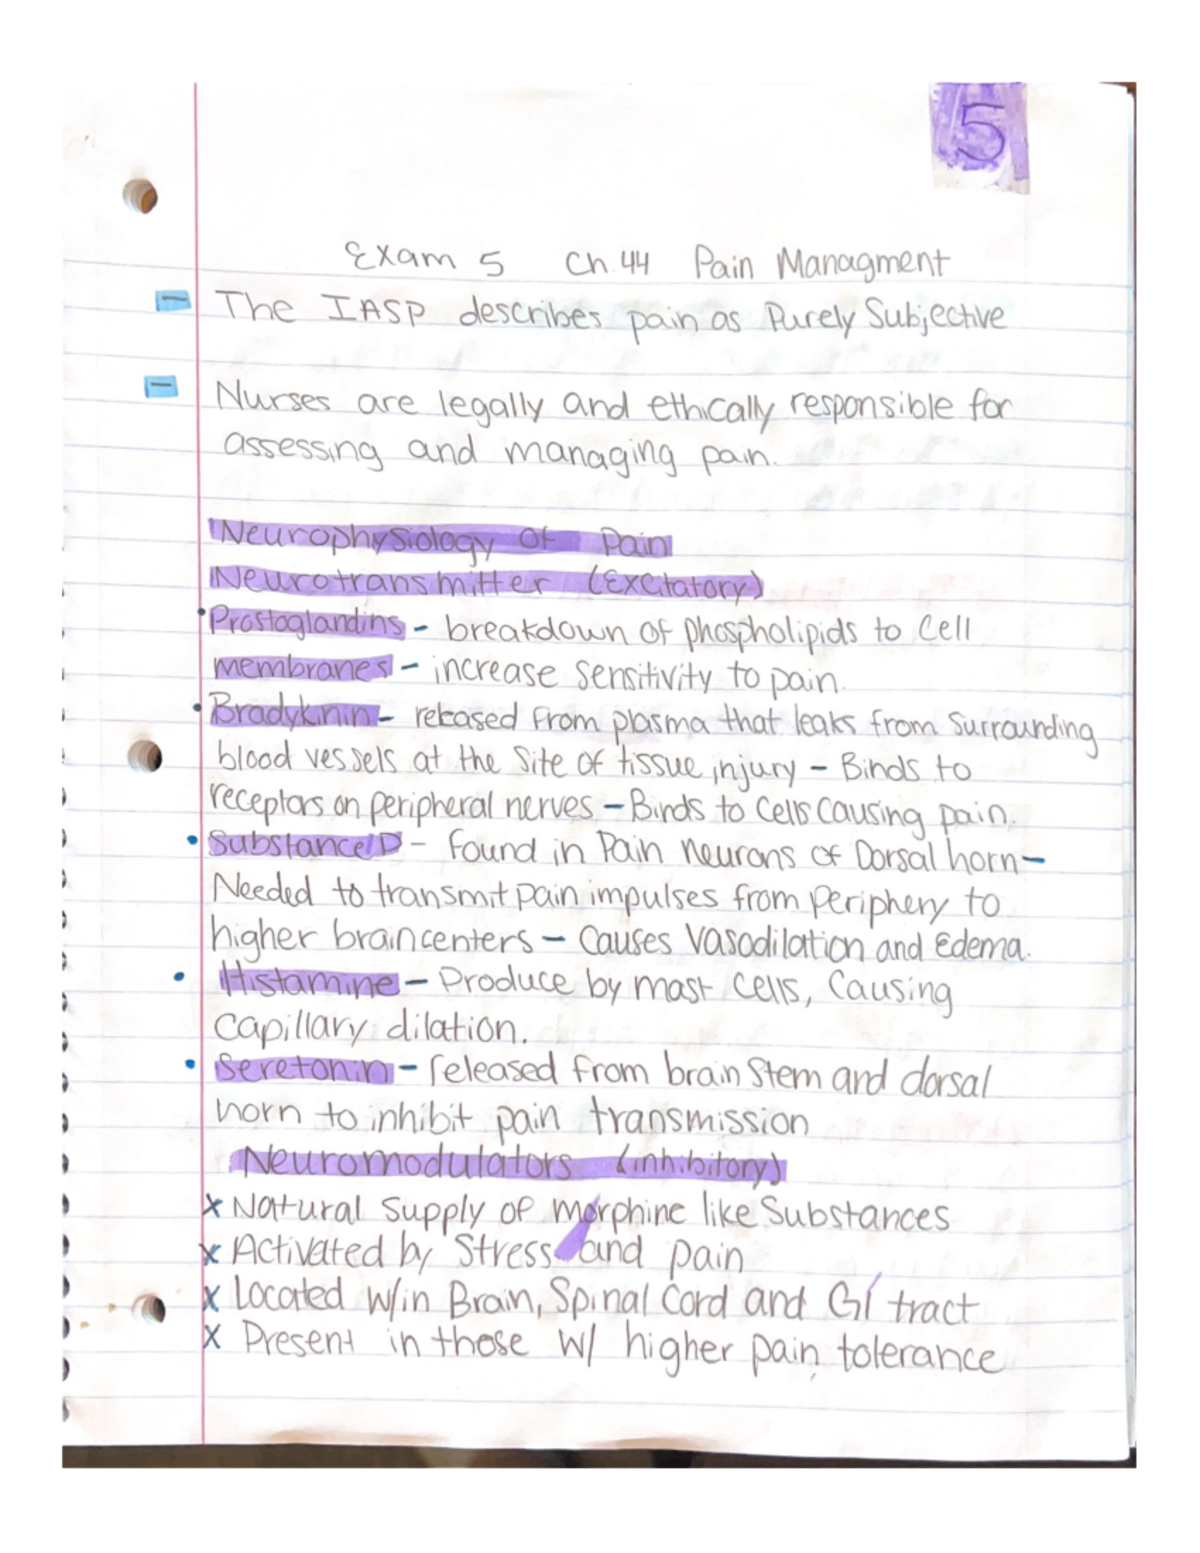 5
Exam 5 Ch. 44 Pain Managment
- The IASP describes pain as Purely Subjective
- Nurses are legally and ethically responsible for
assessing and managing pain.
Neurophysiology of Pain
Neurotransmitter (Excitatory)
• Prostoglandins - breakdown of phospholipids to cell
membranes - increase sensitivity to pain.
• Bradyknin - released from plasma that leaks from surrounding
blood vessels at the site of tissue injury - Binds to
receptors on peripheral nerves - Binds to cells causing pain.
• Substance P - found in Pain Neurons of Dorsal horn -
Needed to transmit pain impulses from periphery to
higher brain centers - causes vasodilation and Edema.
• Histamine - Produce by mast cells, causing
capillary dilation.
• Seretonin - released from brain stem and dorsal
horn to inhibit pain transmission
Neuromodulators (inhibitory)
x Natural supply of morphine like substances
x Activated by Stress and pain
x Located w/in Brain, Spinal Cord and GI tract
x Present in those w/ higher pain tolerance